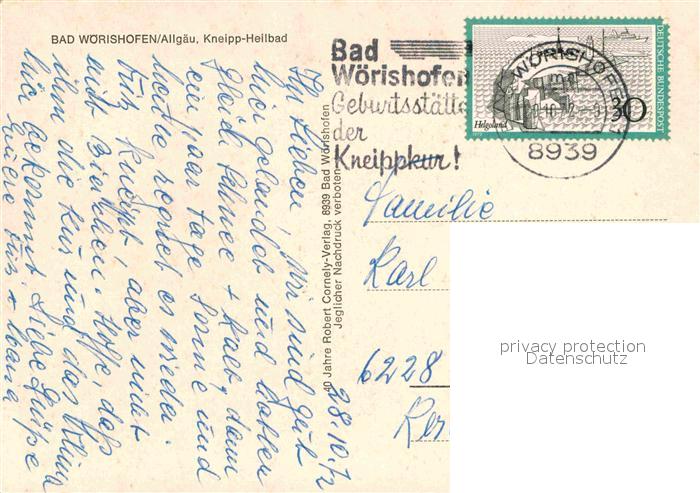 BAD WÖRISHOFEN/Allgäu, Kneipp-Heilbad
Bad
Wörishofen
Geburtsstätte
der
Kneippkur!
WÖRISHOFEN
8939
DEUTSCHE BUNDESPOST
Helgoland
30
40 Jahre Robert Cornely-Verlag, 8939 Bad Wörishofen
Jeglicher Nachdruck verboten
28.10.72
Ihr Lieben, Wir sind gut
hier gelandet und hatten
Schnee + kalt, dann
ein paar Tage Sonne und
heute regnet es wieder.
Fritz kneippt aber nicht
mit Bierchen. Hoffe, daß
ihm die Kur und das Klima
hier bekommt. Liebe Grüße
Familie
Karl
6228
privacy protection
Datenschutz